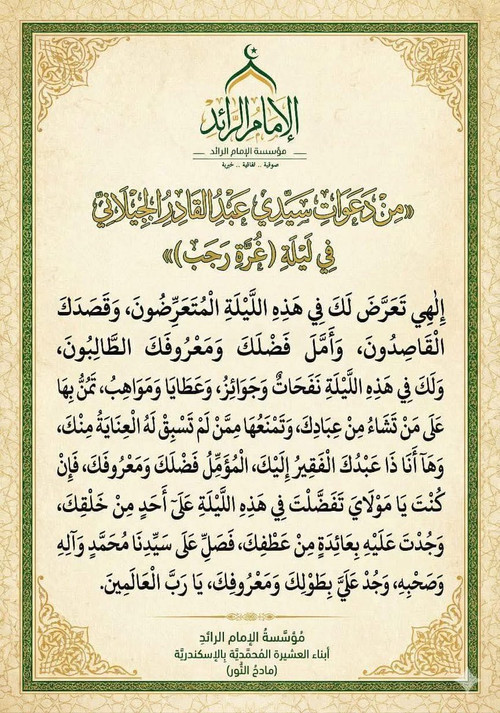 الإمام الرائد
مؤسسة الإمام الرائد
صوفية .. ثقافية .. خيرية
«مِنْ دَعَوَاتِ سَيِّدِي عَبْدُ القَادِرِ الجِيْلَانِيِّ
فِي لَيْلَةِ (غُرَّةِ رَجَبْ)»
إِلٰهِي تَعَرَّضَ لَكَ فِي هَذِهِ اللَّيْلَةِ الْمُتَعَرِّضُونَ، وَقَصَدَكَ
الْقَاصِدُونَ، وَأَمَّلَ فَضْلَكَ وَمَعْرُوفَكَ الطَّالِبُونَ،
وَلَكَ فِي هَذِهِ اللَّيْلَةِ نَفَحَاتٌ وَجَوَائِزُ، وَعَطَايَا وَمَوَاهِبُ، تَمُنُّ بِهَا
عَلَى مَنْ تَشَاءُ مِنْ عِبَادِكَ، وَتَمْنَعُهَا مِمَّنْ لَمْ تَسْبِقْ لَهُ الْعِنَايَةُ مِنْكَ،
وَهَا أَنَا ذَا عَبْدُكَ الْفَقِيرُ إِلَيْكَ، الْمُؤَمِّلُ فَضْلَكَ وَمَعْرُوفَكَ، فَإِنْ
كُنْتَ يَا مَوْلَايَ تَفَضَّلْتَ فِي هَذِهِ اللَّيْلَةِ عَلَىٰ أَحَدٍ مِنْ خَلْقِكَ،
وَجُدْتَ عَلَيْهِ بِعَائِدَةٍ مِنْ عَطْفِكَ، فَصَلِّ عَلَى سَيِّدِنَا مُحَمَّدٍ وَآلِهِ
وَصَحْبِهِ، وَجُدْ عَلَيَّ بِطَوْلِكَ وَمَعْرُوفِكَ، يَا رَبَّ الْعَالَمِينَ.
مُؤسَّسةُ الإمام الرائدِ
أبناء العشيرة المُحمّديَّة بالإسكندريَّة
(مادحُ النُّور)